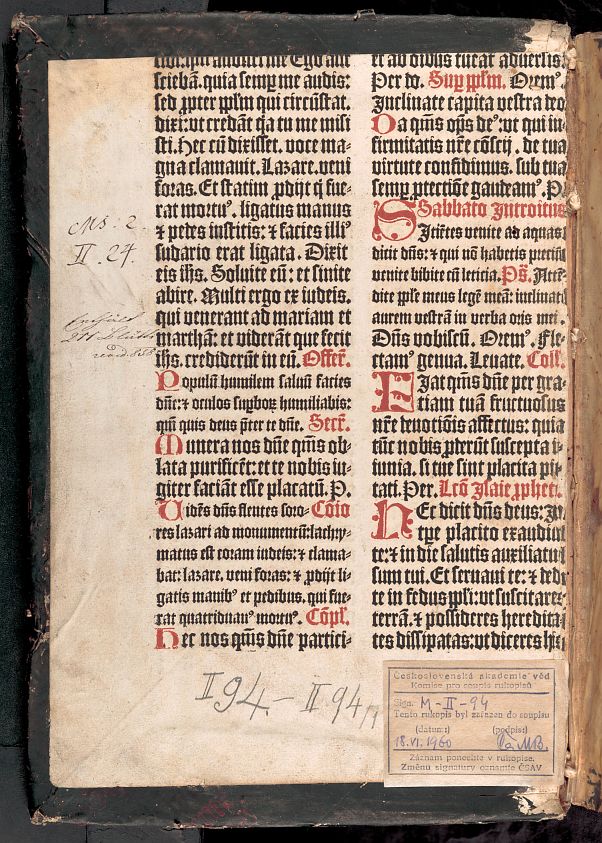 sciebam. quia semp me audis:
sed ꝓpter ppl̄m qui circūstat.
dixi: vt credāt qa tu me misi
sti. Hec cū dixisset. voce ma-
gna clamauit. Lazare. veni
foras. Et statim ꝓdijt qͥ fue-
rat mortuꝰ. ligatus manus
⁊ pedes institis: ⁊ facies illiꝰ
sudario erat ligata. Dixit
eis ihs. Soluite eū: et sinite
abire. Multi ergo ex iudeis.
qui venerant ad mariam et
marthā: et viderāt que fecit
ihs. crediderūt in eū. Offert̄.
Populū humilem saluū facies
dn̄e: ⁊ oculos suꝑboꝝ humiliabis:
qm̄ quis deus p̄ter te dn̄e. Secr̄.
Munera nos dn̄e qm̄s ob-
lata purificēt: et te nobis iu-
giter faciāt esse placatū. P.
Vidēs dn̄s flentes soro- Cōio
res lazari ad monumentū: lachry-
matus est coram iudeis: ⁊ clama-
bat: lazare. veni foras: ⁊ ꝓdijt li-
gatis manibꝰ et pedibus. qui fue-
rat quatriduanꝰ mortuꝰ. Cōpl̄.
Hec nos qm̄s dn̄e partici-
et ab oībus tueat aduersis:
Per do. Suꝑ ppl̄m. Oremꝰ
Inclinate capita vestra deo
Da qm̄s op̄s deꝰ: vt qui in-
firmitatis nr̄e cōscij. de tua
virtute confidimus. sub tua
semꝑ ptectiōe gaudeamꝰ. P
Sabbato Introitus
Sitiētes venite ad aquas
dicit dn̄s: ⁊ qui nō habetis preciū
venite bibite cū leticia. Ps̄. Attē-
dite pple meus legē meā: inclinate
aurem vestrā in verba oris mei.
Dn̄s vobiscū. Oremꝰ. Fle-
ctamꝰ genua. Leuate. Coll̄.
Fiat qm̄s dn̄e per gra-
tiam tuā fructuosus
nr̄e deuotiōis affectus: quia
tūc nobis ꝓderūt suscepta i-
iunia. si tue sint placita pie
tati. Per. Lcō Isaie ꝓphet.
Hec dicit dn̄s deus: In
tꝑe placito exaudiui
te: ⁊ in die salutis auxiliatus
sum tui. Et seruaui te: ⁊ dedi
te in fedus ppl̄i: vt suscitares
terrā. ⁊ possideres heredita
tes dissipatas: vt diceres
MS: 2.
II. 24.
I 94 - II 94/1
Československá akademie věd
Komise pro soupis rukopisů
Sign. M-II-94
Tento rukopis byl zařazen do soupisu
(datum:) (podpis:)
18.VI.1960
Záznam ponechte v rukopise.
Změnu signatury oznamte ČSAV